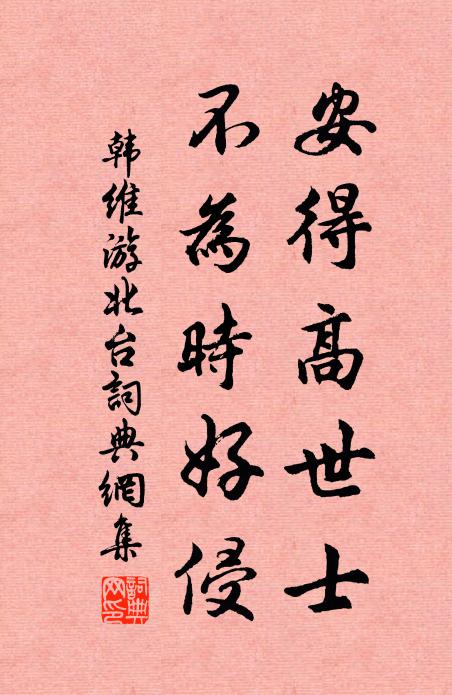 安得高世士
不為時好侵
韩維游北台詞典網集
詞典网印